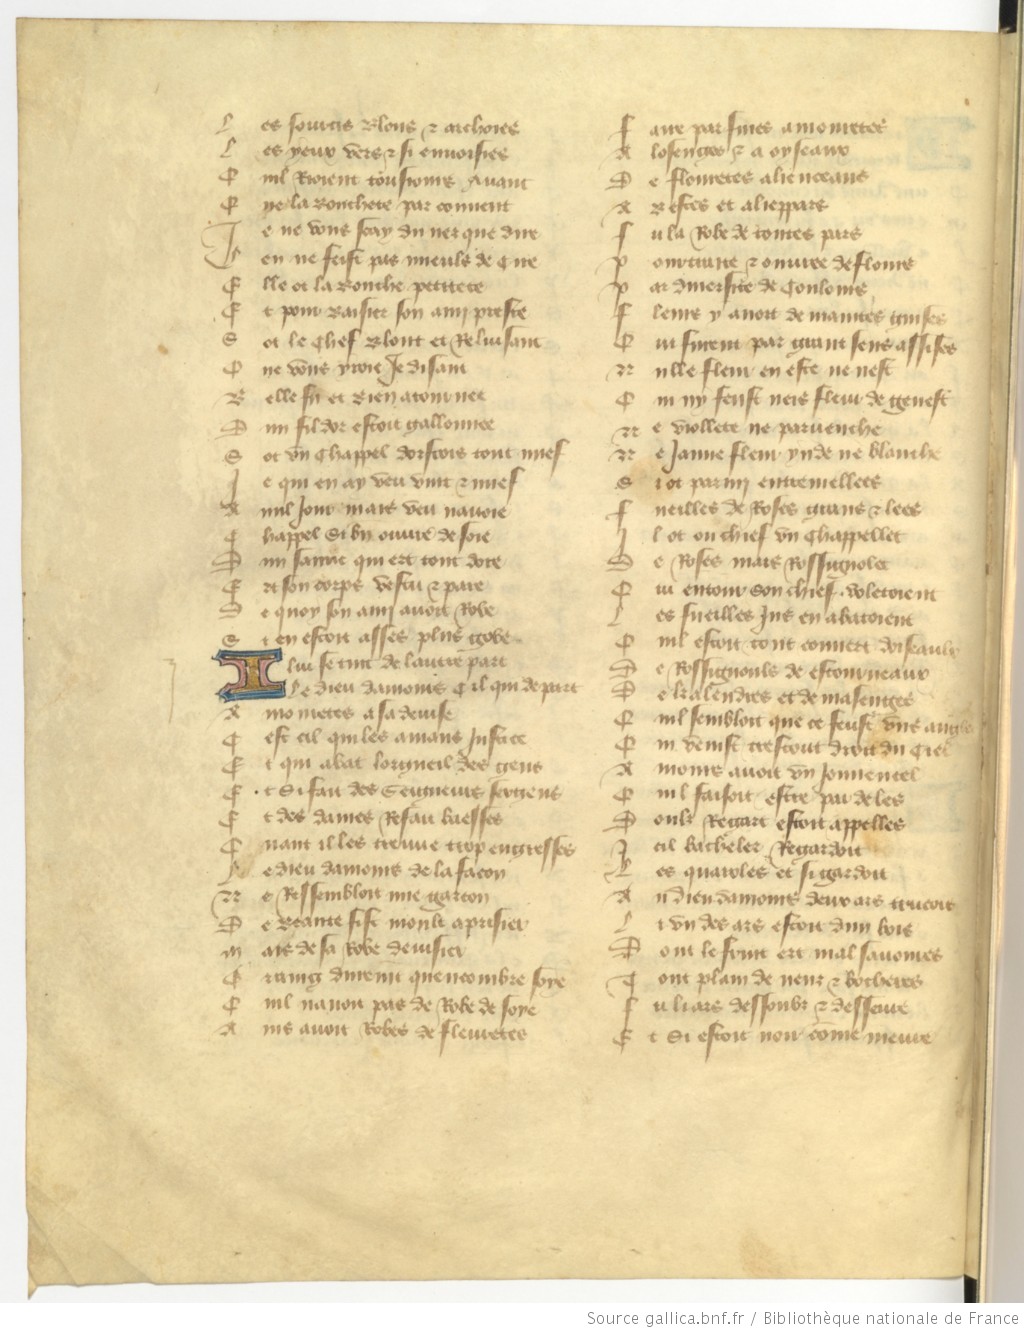 L es sourcis blons & archoies
L es yeux vers & si envoisies
Q uil Rioient tousiours Avant
Q ue la bouchete par convent
J e ne vous scay du nez que dire
L en ne feist pas mieulz de Cire
E lle ot la bouche petitete
E t pour baisier son ami preste
S ot le Chef blont et Reluisant
Q ue vous yroie Je disant
B elle fu et bien atournee
D un fil dor estoit gallonnee
S ot un Chappel dorfrois tout nuef
J e qui en ay veu vint & nuef
A nul Jour mais veu navoie
C happel Si bn ouvre de soie
D un samit qui ert tout dore
E rt son corps vestu & pare
D e quoy son ami avoit Robe
S i en estoit asses plus gobe
A lui se tint de lautre part
L e dieu damours Cil qui depart
A mouretes a sa devise
C est cil qui les amans Justice
E t qui abat lorgueil des gens
E t Si fait des Seigneurs sergens
E t des dames Refait baesses
Q uant il les treuve trop engresses
L e dieu damours de la facon
N e Ressembloit mie garcon
D e beaute fist moult a prisier
M ais de sa Robe devisier
C riaing durement quencombre soye
Q uil navoit pas de Robe de soye
A ins avoit Robes de fleuretes
F aite par fines amouretes
A losenges & a oyseaux
D e flouretes a lienceaus
A bestes et a lieppars
F u la Robe de toutes pars
P ourtraite & ouvree de flours
P ar diversite de Coulours
F leurs y avoit de maintes guises
Q ui furent par grant sens assises
N ulle fleur en este ne nest
Q ui ny feust neis fleur de genest
N e violete ne parvenche
N e Jaune fleur ynde ne blanche
S i ot parmi entremellees
F ueilles de Roses grans & lees
J l ot ou chief un Chappellet
D e Roses mais Rossignolet
Q ui entour son chief voletoient
L es fueilles Jus en abatoient
Q uil estoit tout couvert doiseaulx
D e Rossignouls de estourneaux
D e kalendres et de masenges
Q uil sembloit que ce feust uns anges
Q ui venist trestout droit du Ciel
A mours avoit un Jouvencel
Q uil faisoit estre par de les
D oulz Regart estoit appelles
J cil bacheler Regardoit
L es quaroles et si gardoit
A u dieu damours deux ars turcois
L i un des ars estoit dun bois
D ont le fruit ert mal savoures
T out plain de neux & bocheres
F u li ars dessoubz & desseure
E t Si estoit noir come meure
Source gallica.bnf.fr / Bibliothèque nationale de France